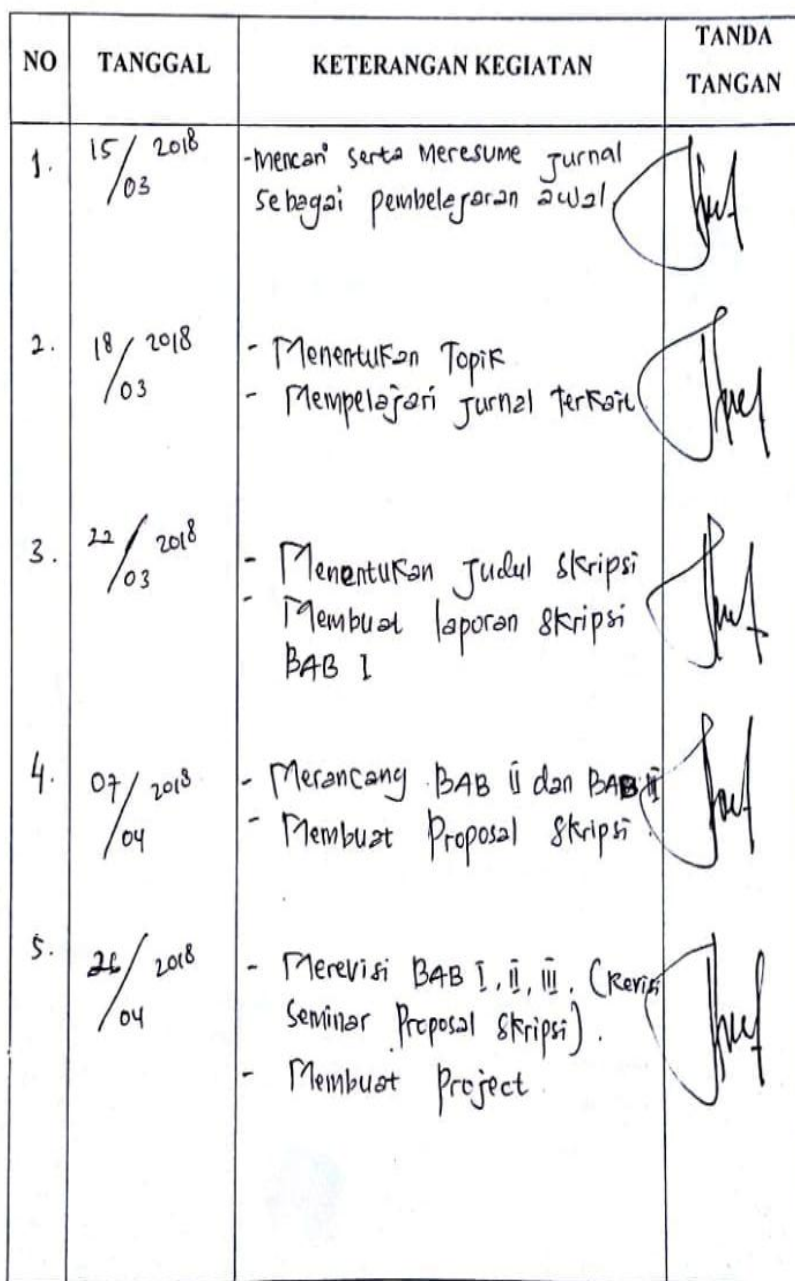 NO TANGGAL KETERANGAN KEGIATAN TANDA TANGAN
1. 15/03 2018 -Mencari serta Meresume Jurnal
sebagai pembelajaran awal
2. 18/03 2018 - Menentukan Topik
- Mempelajari Jurnal terkait
3. 22/03 2018 - Menentukan Judul Skripsi
- Membuat laporan Skripsi
BAB I
4. 07/04 2018 - Merancang BAB II dan BAB II
- Membuat Proposal Skripsi.
5. 26/04 2018 - Merevisi BAB I, II, III. (Revisi
Seminar Proposal Skripsi).
- Membuat Project